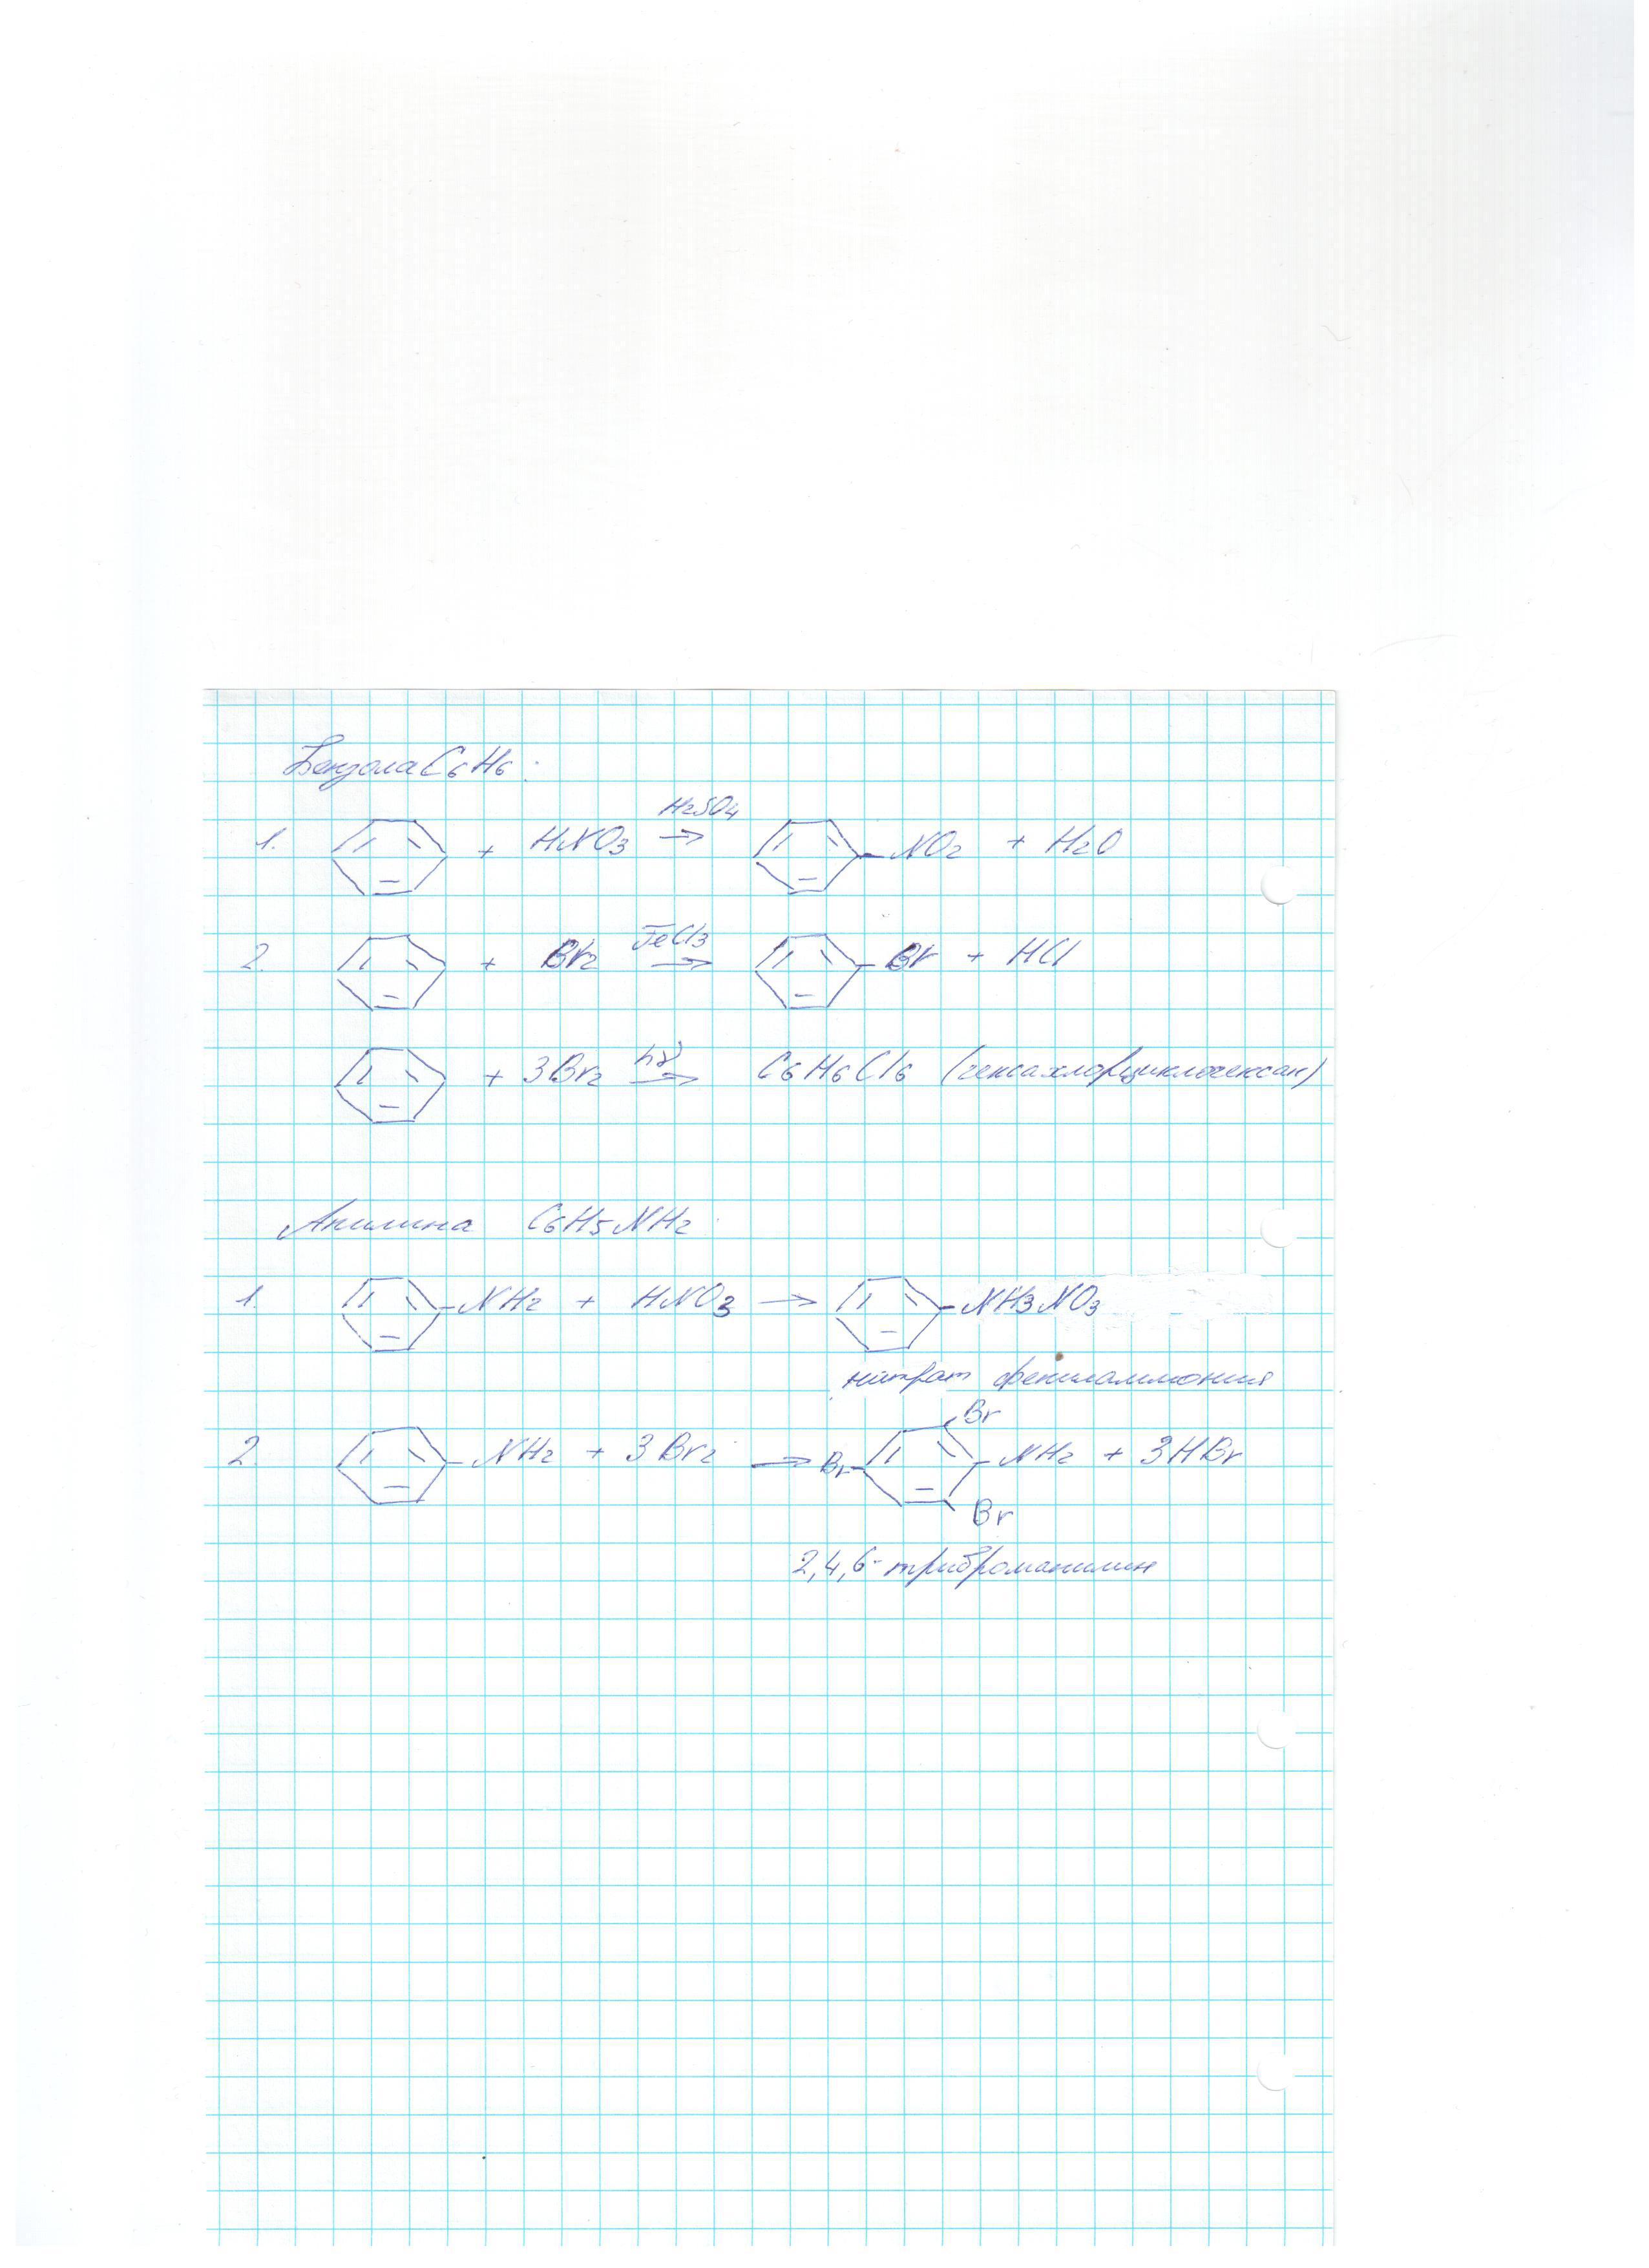 Бензола C6H6:
1. + HNO3 H2SO4 → NO2 + H2O
2. + Br2 FeCl3 → Br + HCl
+ 3Br2 hγ → C6H6Cl6 (гексахлорциклогексан)
Анилина C6H5NH2
1. NH2 + HNO3 → NH3NO3
нитрат фениламмония
2. NH2 + 3Br2 → Br Br Br NH2 + 3HBr
2,4,6-триброманилин